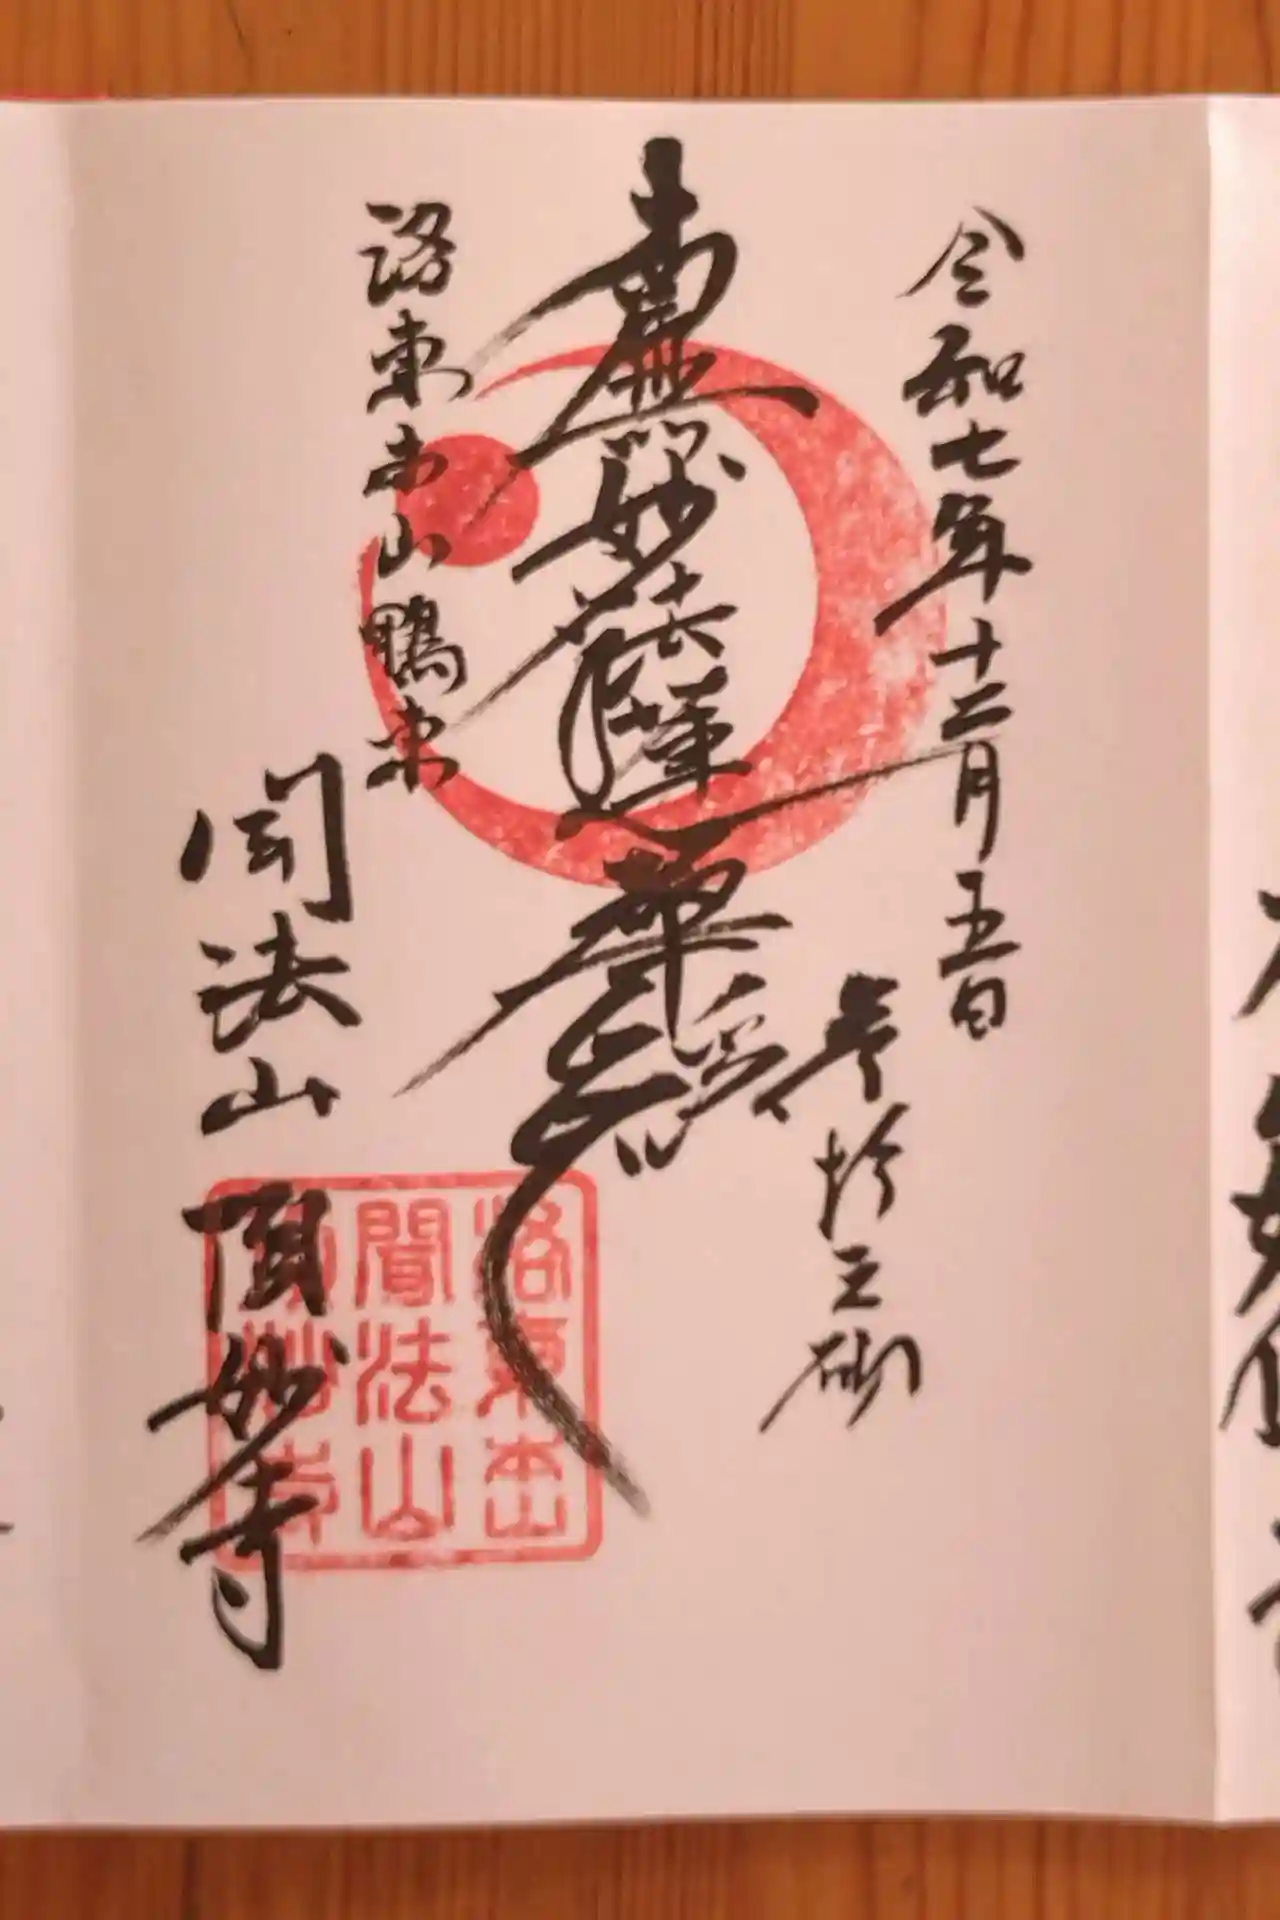 令和七年十二月五日
於三砌
南無妙法蓮華経
洛東本山鴨東
聞法山頂妙寺
洛東本山
聞法山
頂妙寺